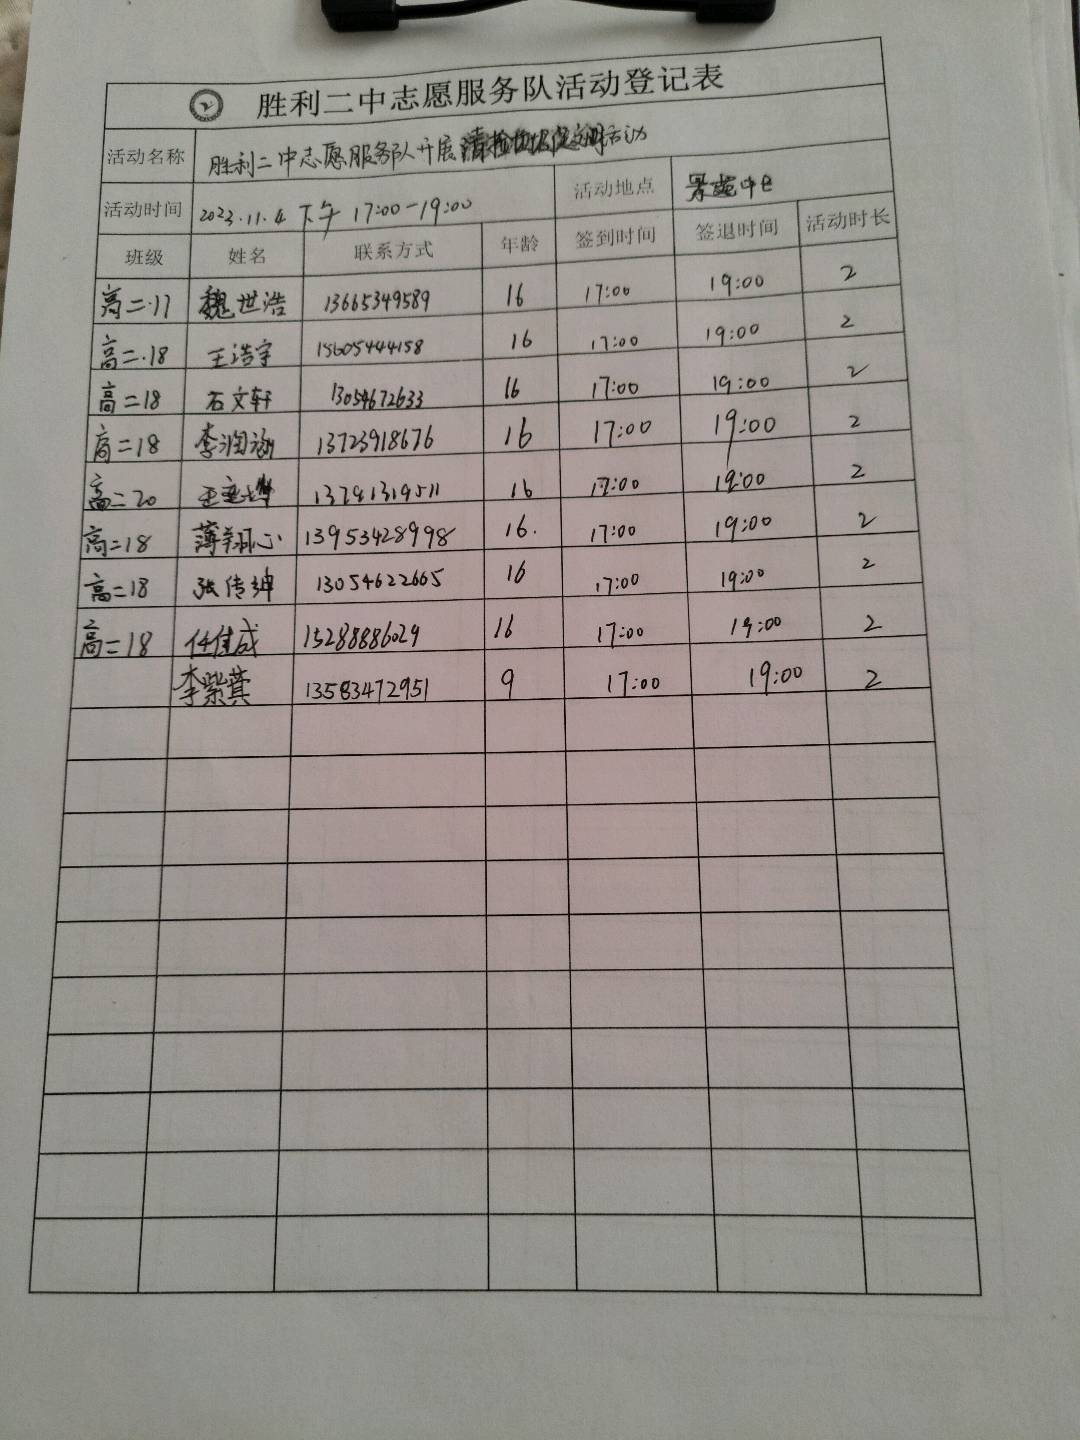 胜利二中志愿服务队活动登记表
活动名称 胜利二中志愿服务队开展清捡垃圾活动
活动时间 2023.11.4 下午 17:00-19:00 活动地点
班级 姓名 联系方式 年龄 签到时间 签退时间 活动时长
高二.17 魏世浩 13665349589 16 17:00 19:00 2
高二.18 王浩宇 15605444158 16 17:00 19:00 2
高二18 石文轩 13054672633 16 17:00 19:00 2
高二18 李润涵 13723918676 16 17:00 19:00 2
高二20 王 13781319511 16 17:00 19:00 2
高二18 薄翔心 13953428998 16. 17:00 19:00 2
高二18 张传坤 13054622665 16 17:00 19:00 2
高二18 任佳成 15288886029 16 17:00 19:00 2
李紫萁 13583472951 9 17:00 19:00 2